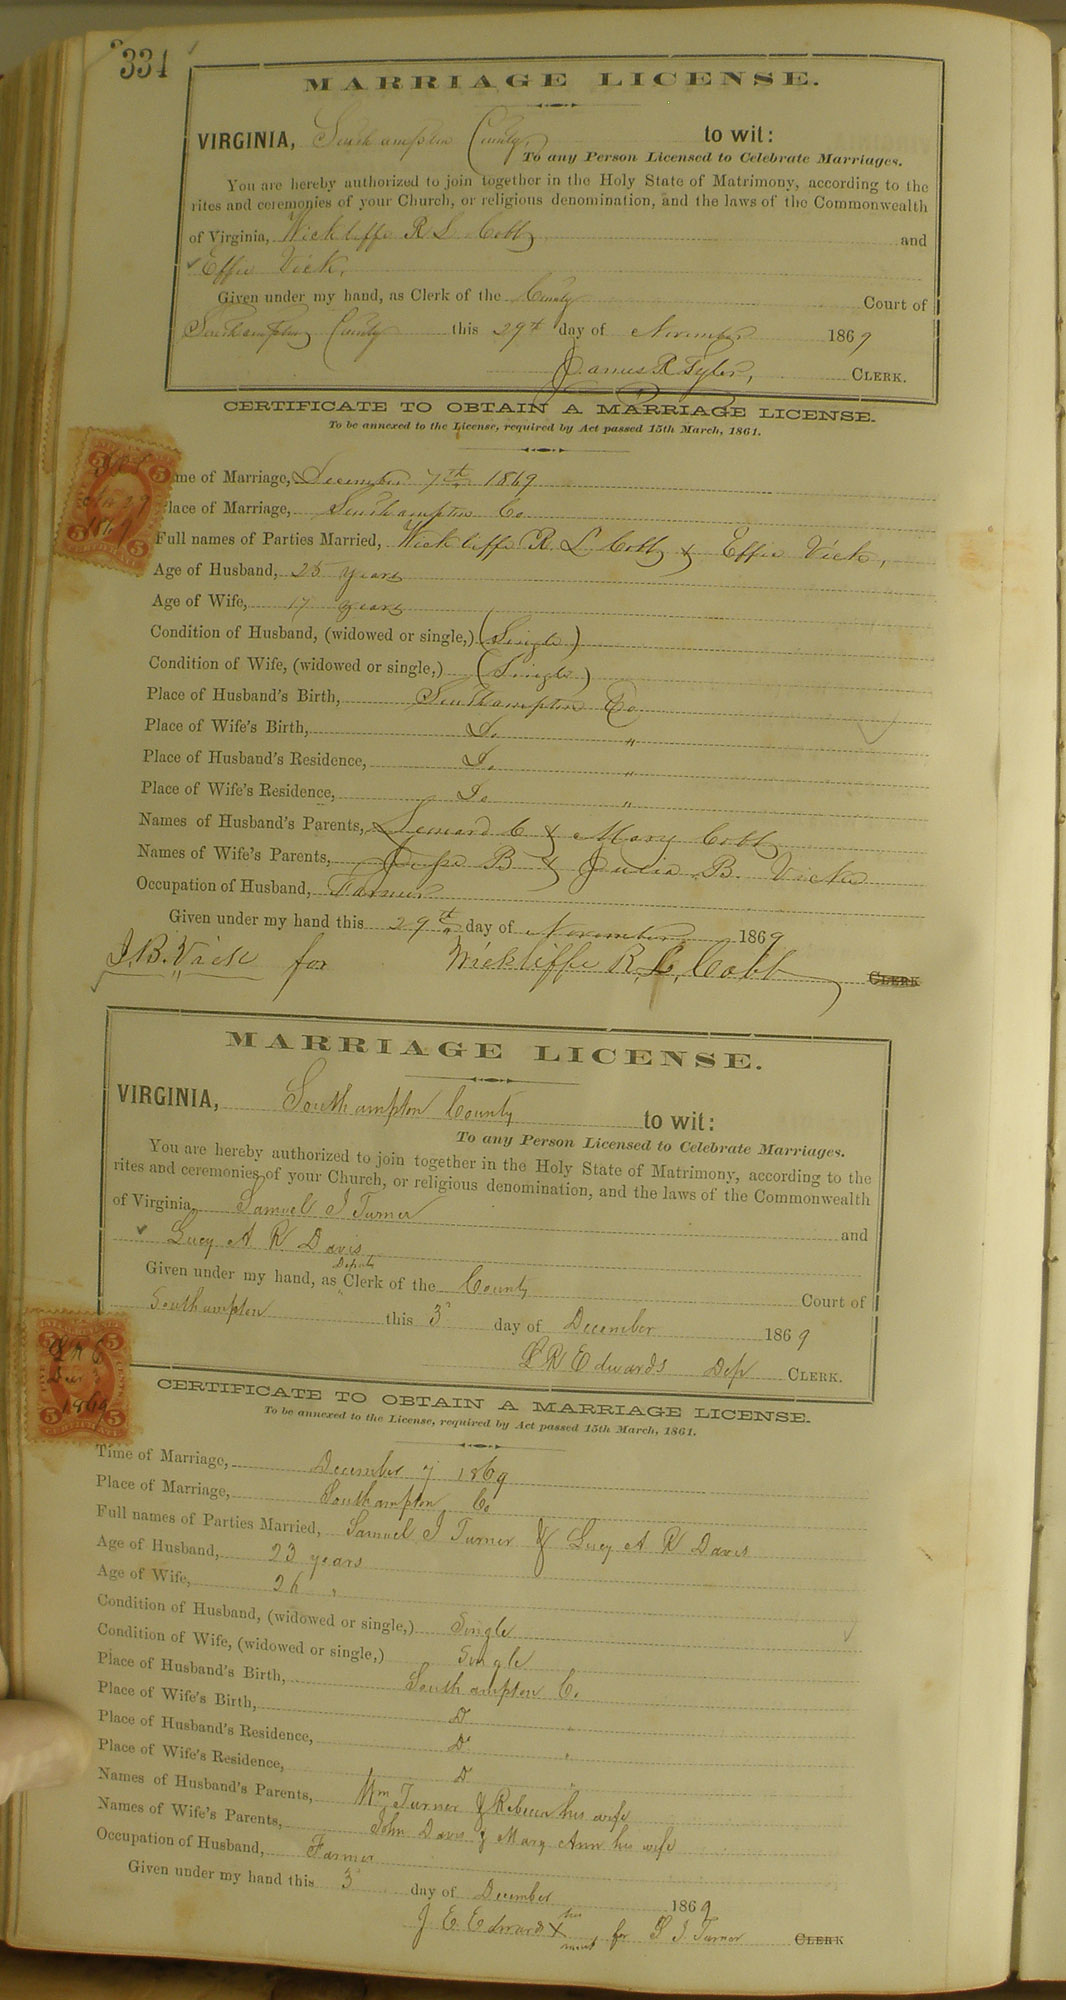 334
MARRIAGE LICENSE.
VIRGINIA, Southampton County, to wit:
To any Person Licensed to Celebrate Marriages.
You are hereby authorized to join together in the Holy State of Matrimony, according to the
rites and ceremonies of your Church, or religious denomination, and the laws of the Commonwealth
of Virginia, Wickliffe R L Cobb and
Effie Vick,
Given under my hand, as Clerk of the County Court of
Southampton County this 29th day of November 1869
James R Tyler, CLERK.
CERTIFICATE TO OBTAIN A MARRIAGE LICENSE.
To be annexed to the License, required by Act passed 15th March, 1861.
me of Marriage, December 7th 1869
lace of Marriage, Southampton Co
Full names of Parties Married, Wickliffe R. L Cobb & Effie Vick,
Age of Husband, 25 years
Age of Wife, 17 years
Condition of Husband, (widowed or single,) (Single)
Condition of Wife, (widowed or single,) (Single)
Place of Husband's Birth, Southampton Co
Place of Wife's Birth, Do "
Place of Husband's Residence, Do "
Place of Wife's Residence, Do "
Names of Husband's Parents, Leonard C & Mary Cobb
Names of Wife's Parents, B & Julia B. Vick
Occupation of Husband, Farmer
Given under my hand this 29th day of November 1869
J.B. Vick for Wickliffe R. L. Cobb CLERK
MARRIAGE LICENSE.
VIRGINIA, Southampton County to wit:
To any Person Licensed to Celebrate Marriages.
You are hereby authorized to join together in the Holy State of Matrimony, according to the
rites and ceremonies of your Church, or religious denomination, and the laws of the Commonwealth
of Virginia, Samuel J Turner and
Lucy A R Davis
Deputy
Given under my hand, as Clerk of the County Court of
Southampton this 3 day of December 1869
L R Edwards Dep CLERK.
CERTIFICATE TO OBTAIN A MARRIAGE LICENSE.
To be annexed to the License, required by Act passed 15th March, 1861.
Time of Marriage, December 7 1869
Place of Marriage, Southampton Co
Full names of Parties Married, Samuel J Turner & Lucy A R Davis
Age of Husband, 23 years
Age of Wife, 26 "
Condition of Husband, (widowed or single,) Single
Condition of Wife, (widowed or single,) Single
Place of Husband's Birth, Southampton Co
Place of Wife's Birth, Do "
Place of Husband's Residence, Do "
Place of Wife's Residence, Do "
Names of Husband's Parents, Wm Turner & Rebecca his wife
Names of Wife's Parents, John Davis & Mary Ann his wife
Occupation of Husband, Farmer
Given under my hand this 3 day of December 1869
J E Edwards his X mark for S J Turner CLERK